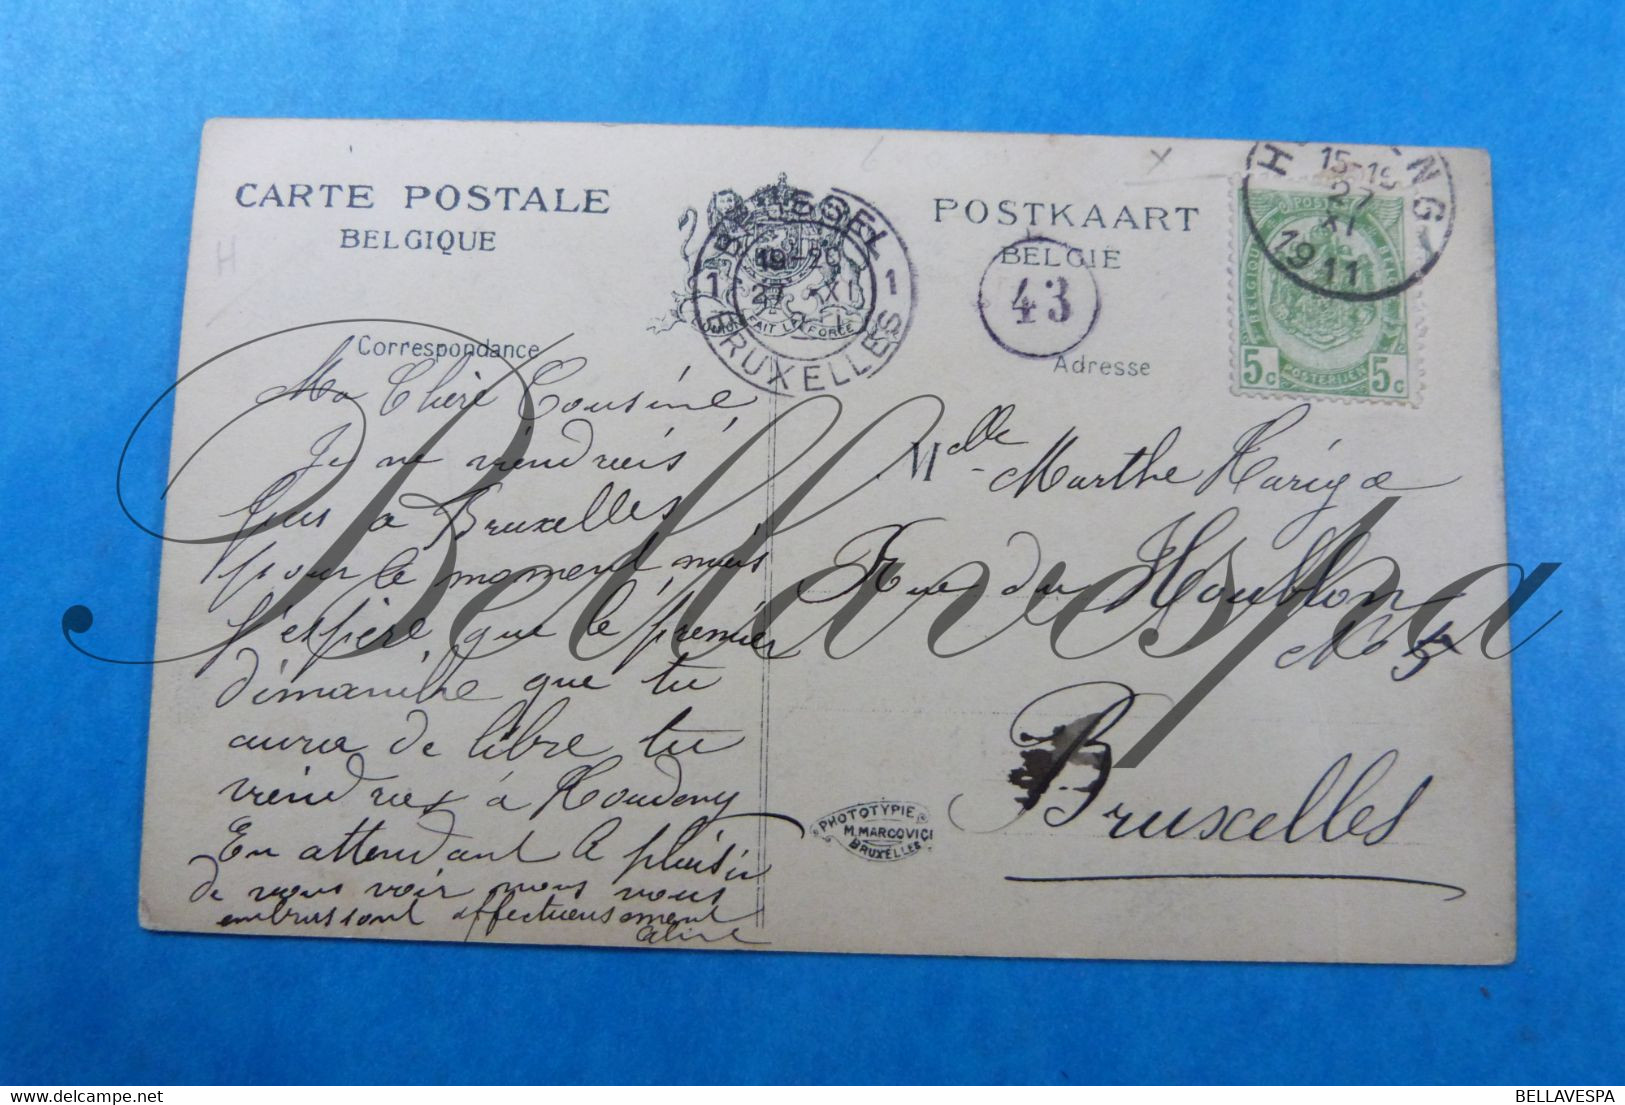 CARTE POSTALE
BELGIQUE
POSTKAART
BELGIE
BRUSSEL
1 19-20 1
27 XI
BRUXELLES
L'UNION FAIT LA FORCE
43
15-16
27
XI
1911
POSTES
BELGIQUE
BELGIË
5c POSTERIJEN 5c
Correspondance
Adresse
Ma Chère Cousine
Je ne viendrais
plus a Bruxelles
pour le moment mais
j'espère que le premier
dimanche que tu
aura de libre tu
viendras à Houdeng
En attendant le plaisir
de vous voir nous vous
embrassont affectueusement
Céline
Melle Marthe
Rue du Houblon
No 5
Bruxelles
PHOTOTYPIE
M. MARCOVICI
BRUXELLES
Bellavespa
BELLAVESPA